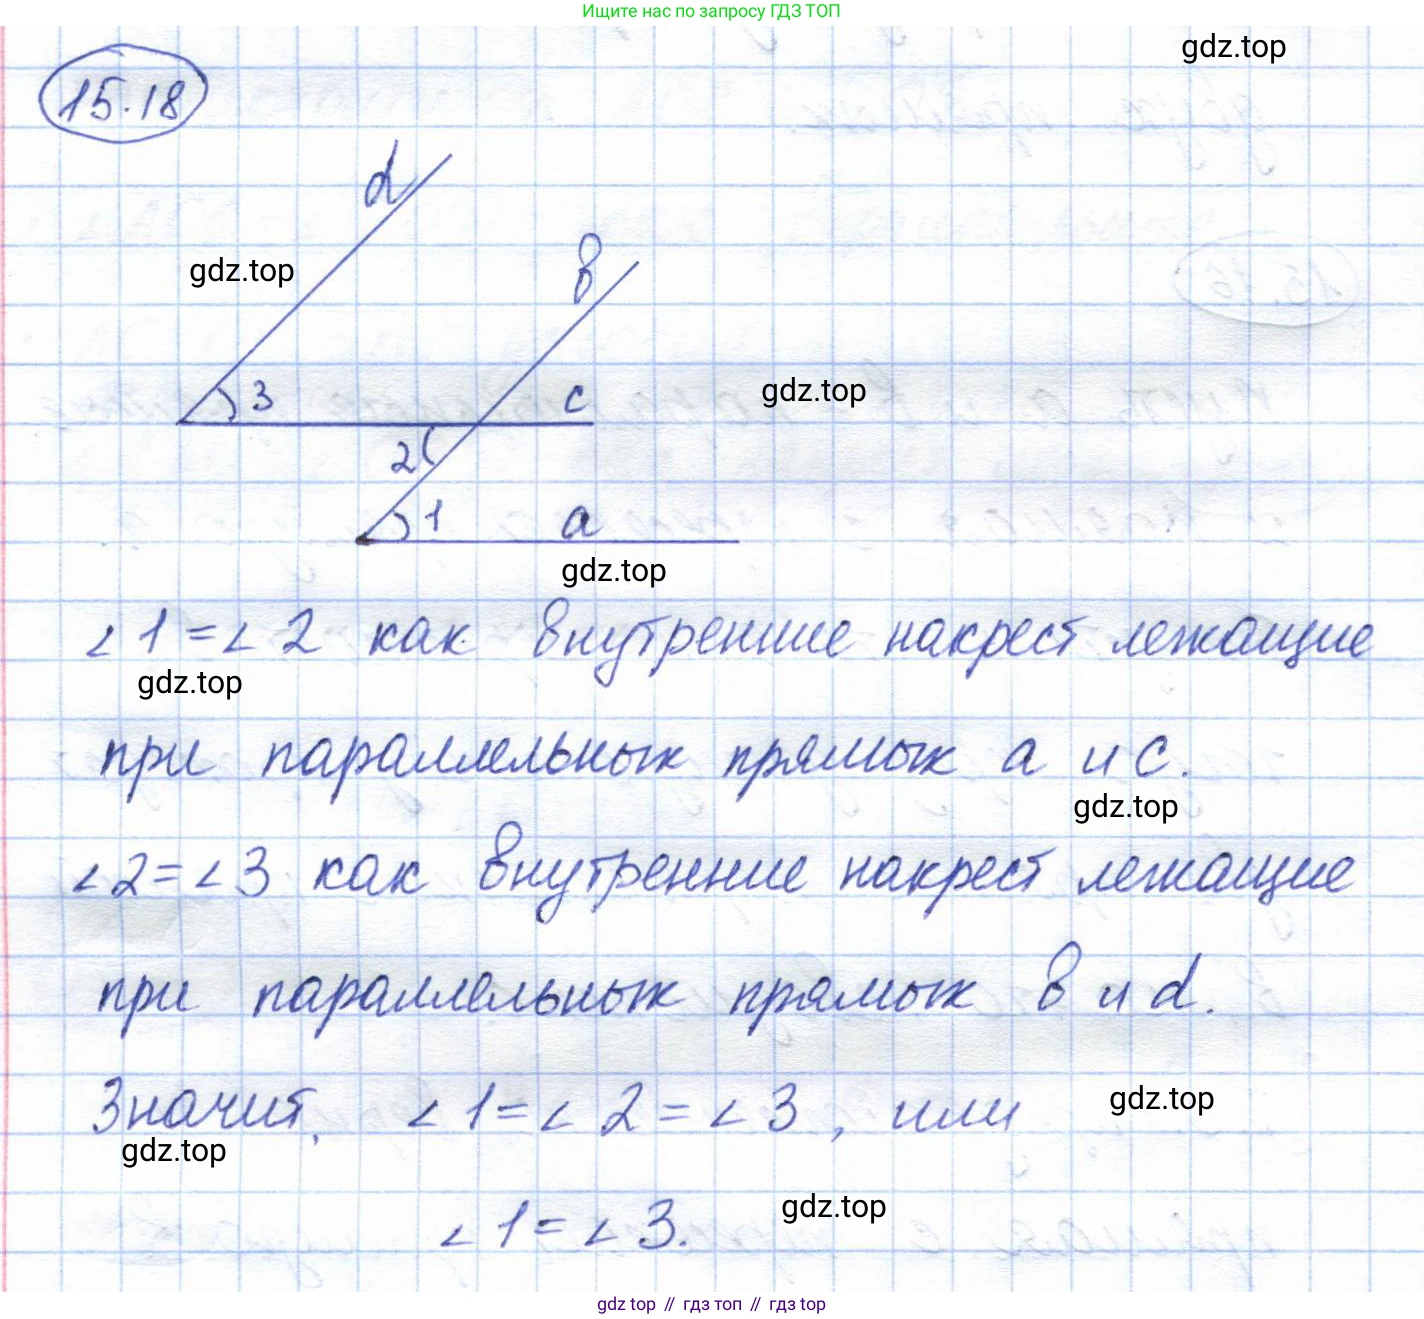 Ищите нас по запросу ГДЗ ТОП
gdz.top
15.18
d
b
gdz.top
3
c
gdz.top
2
1
a
gdz.top
∠1=∠2 как внутренние накрест лежащие
gdz.top
при параллельных прямых a и c.
gdz.top
∠2=∠3 как внутренние накрест лежащие
при параллельных прямых b и d.
Значит, ∠1=∠2=∠3, или
gdz.top
gdz.top
∠1=∠3.
gdz.top
gdz top // гдз топ // gdz top